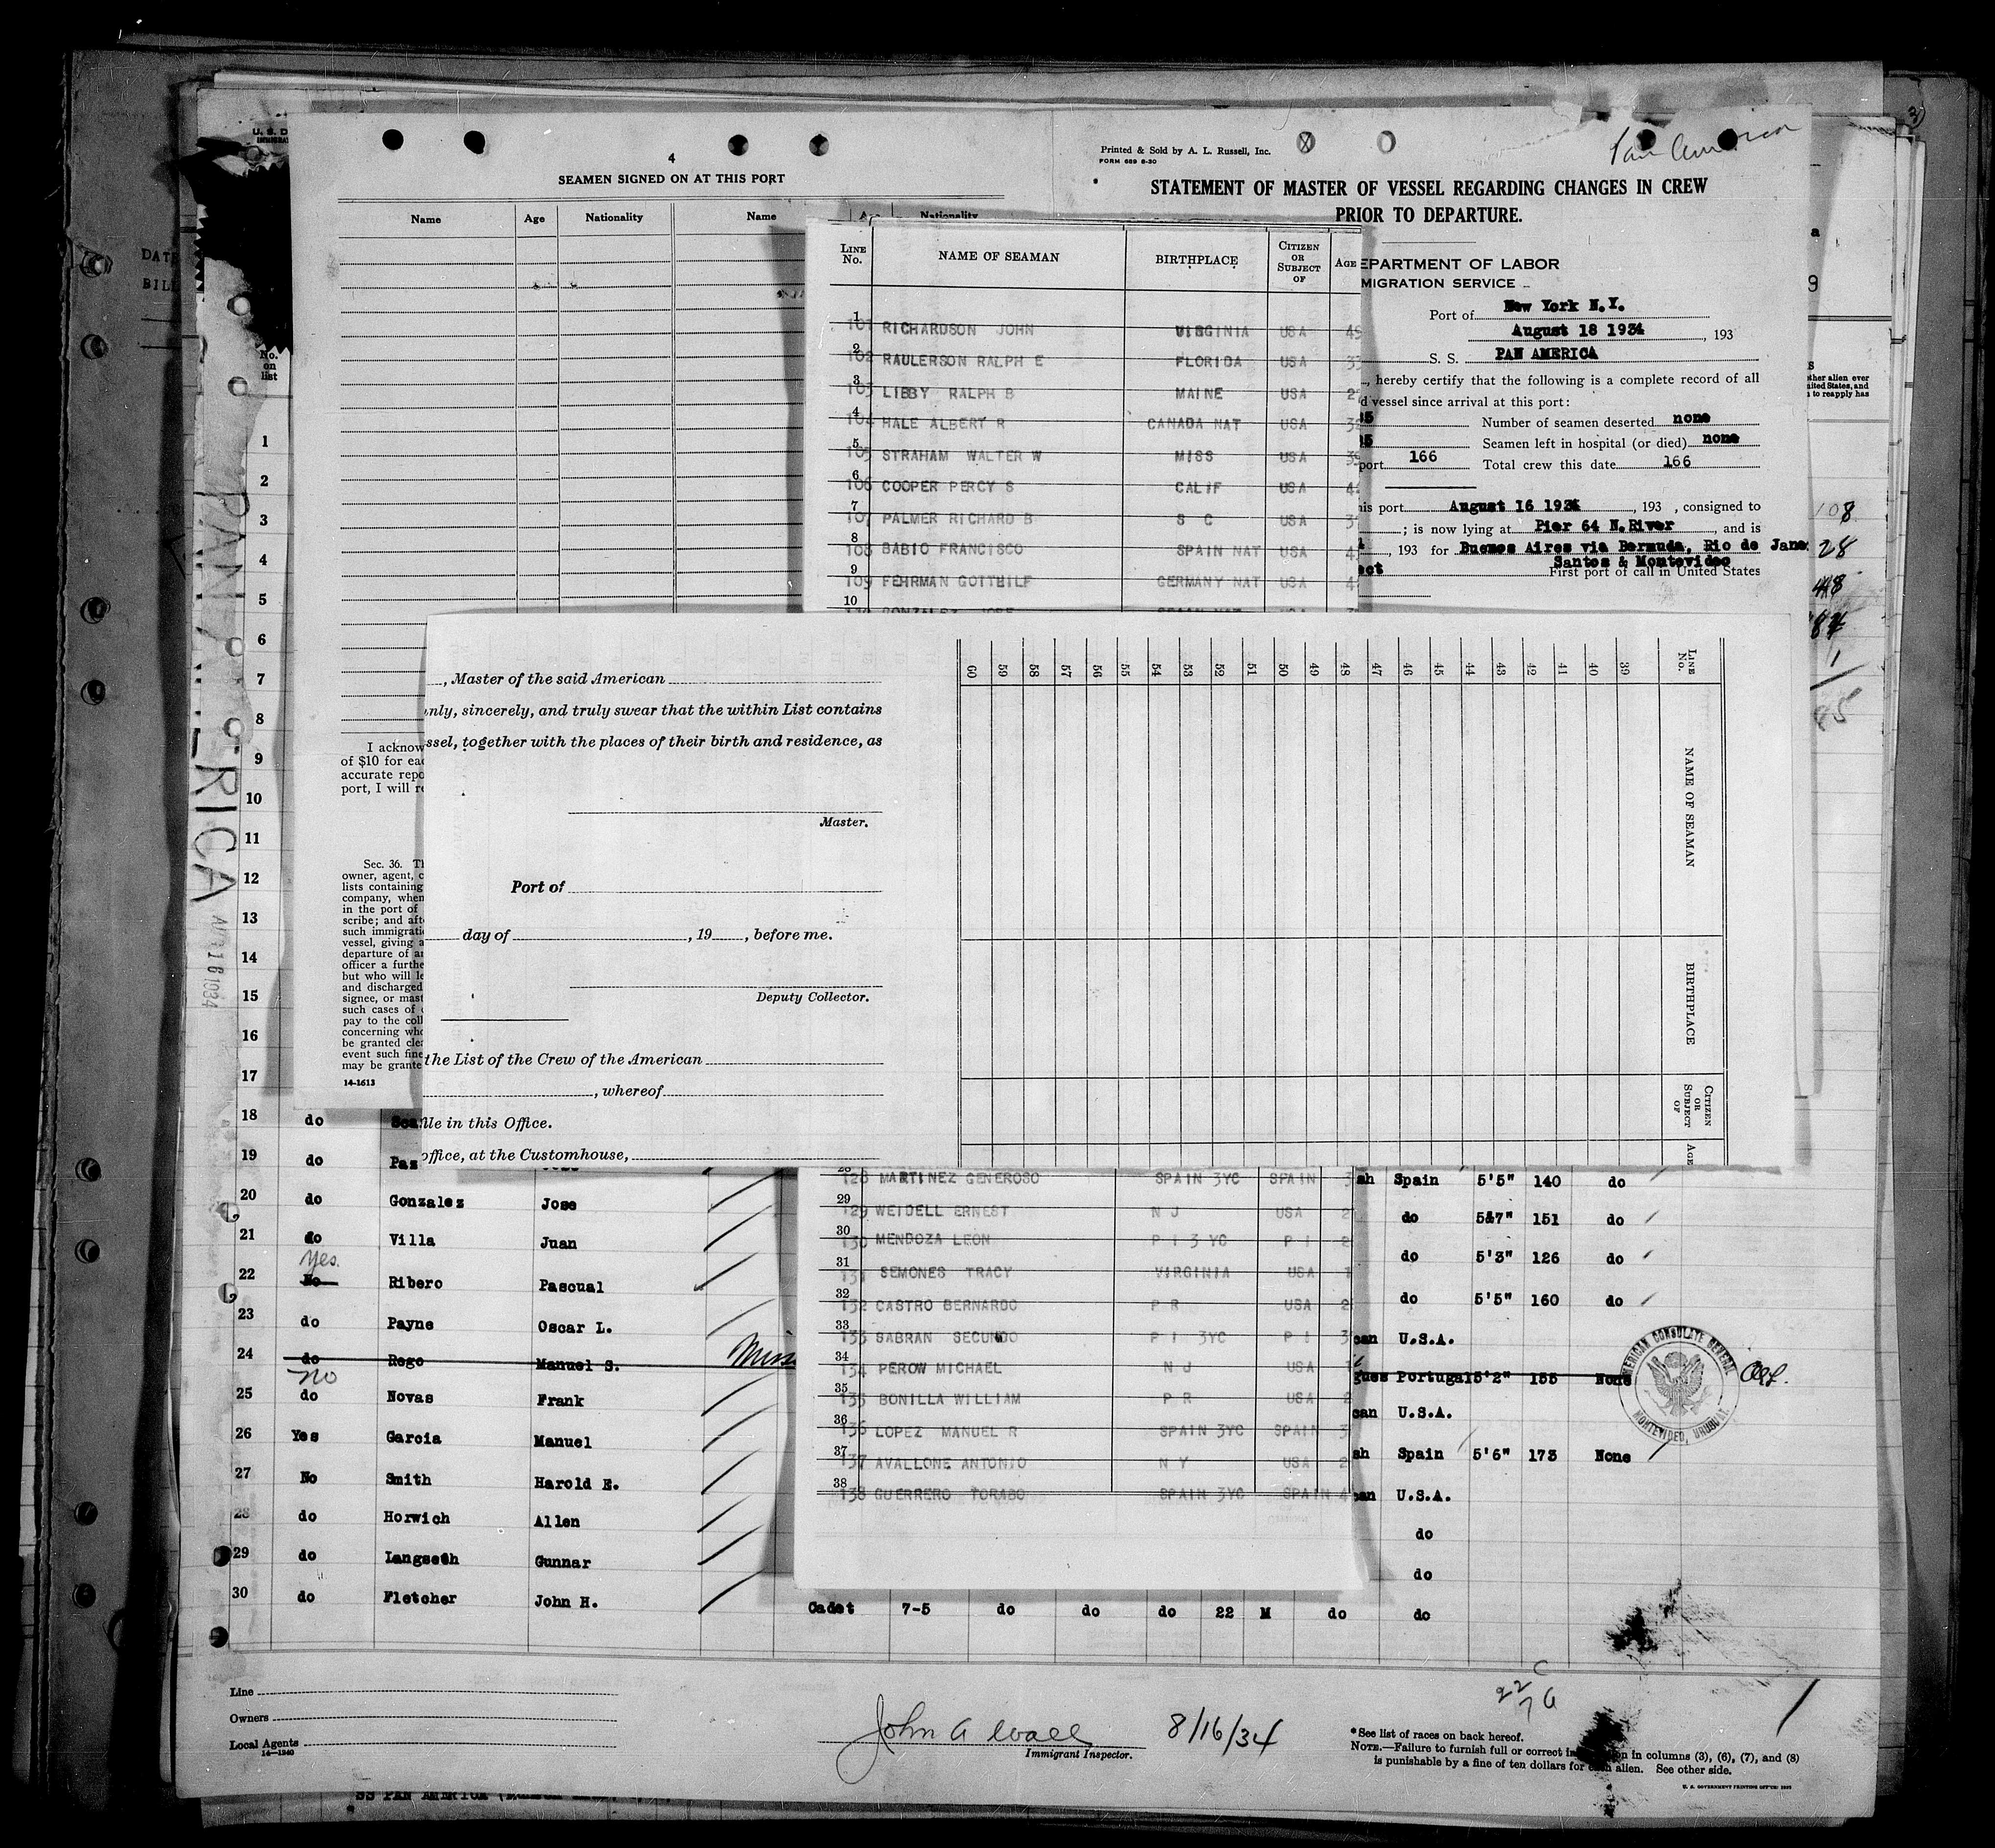 U. S. D
IMMIGRA
4
SEAMEN SIGNED ON AT THIS PORT
Name Age Nationality Name Nationality
Printed & Sold by A. L. Russell, Inc.
FORM 689 6-30
Pan American
STATEMENT OF MASTER OF VESSEL REGARDING CHANGES IN CREW
PRIOR TO DEPARTURE.
EPARTMENT OF LABOR
MIGRATION SERVICE
Port of New York N.Y.
August 18 1934, 193
S. S. PAN AMERICA
, hereby certify that the following is a complete record of all
d vessel since arrival at this port:
Number of seamen deserted none
Seamen left in hospital (or died) none
port 166 Total crew this date 166
his port August 16 1934, 193 , consigned to
; is now lying at Pier 64 N.River, and is
, 193 for Buenos Aires via Bermuda, Rio de Jane
Santos & Montevideo
First port of call in United States
ther alien ever
nited States, and
to reapply has
108
28
48
LINE No. NAME OF SEAMAN BIRTHPLACE CITIZEN OR SUBJECT OF AGE
1 101 RICHARDSON JOHN VIRGINIA USA
2 102 RAULERSON RALPH E FLORIDA USA
3 103 LIBBY RALPH B MAINE USA
4 104 HALE ALBERT R CANADA NAT USA
5 105 STRAHAM WALTER W MISS USA
6 106 COOPER PERCY S CALIF USA
7 107 PALMER RICHARD B S C USA
8 108 BABIO FRANCISCO SPAIN NAT USA
9 109 FEHRMAN GOTTHILF GERMANY NAT USA
10 GONZALEZ JOSE SPAIN NAT USA
DATE
BILL
No. on list
PAN AMERICA
AUG 16 1934
1
2
3
4
5
6
7
8
9
10
11
12
13
14
15
16
17
I acknow
of $10 for eac
accurate repo
port, I will re
Sec. 36. Th
owner, agent, c
lists containing
company, when
in the port of
scribe; and afte
such immigrati
vessel, giving a
departure of an
officer a furthe
but who will le
and discharged
signee, or mast
such cases of d
pay to the coll
concerning who
be granted clea
event such fine
may be grante
14-1613
, Master of the said American
nly, sincerely, and truly swear that the within List contains
ssel, together with the places of their birth and residence, as
Master.
Port of
day of , 19 , before me.
Deputy Collector.
the List of the Crew of the American
, whereof
file in this Office.
office, at the Customhouse,
60 59 58 57 56 55 54 53 52 51 50 49 48 47 46 45 44 43 42 41 40 39 LINE No.
NAME OF SEAMAN
BIRTHPLACE
CITIZEN OR SUBJECT OF
AGE
18 do
19 do Paz
20 do Gonzalez Jose
21 do Villa Juan
Yes.
22 No Ribero Pascual
23 do Payne Oscar L.
24 do Rego Manuel S.
no
25 do Novas Frank
26 Yes Garcia Manuel
27 No Smith Harold E.
28 do Horwich Allen
29 do Langseth Gunnar
30 do Fletcher John H. Cadet 7-5 do do do 22 M do do
28 128 MARTINEZ GENEROSO SPAIN 3YC SPAIN
29 129 WEIDELL ERNEST N J USA
30 130 MENDOZA LEON P I 3 YC P I
31 131 SEMONES TRACY VIRGINIA USA
32 132 CASTRO BERNARDO P R USA
33 133 SABRAN SECUNDO P I 3YC P I
34 134 PEROW MICHAEL N J USA
35 135 BONILLA WILLIAM P R USA
36 136 LOPEZ MANUEL R SPAIN 3YC SPAIN
37 137 AVALLONE ANTONIO N Y USA
38 138 GUERRERO TORABO SPAIN 3YC SPAIN
sh Spain 5'5" 140 do
do 5'7" 151 do
do 5'3" 126 do
do 5'5" 160 do
can U.S.A.
gues Portugal 5'2" 155 None
can U.S.A.
sh Spain 5'6" 173 None
can U.S.A.
do
do
AMERICAN CONSULATE GENERAL
MONTEVIDEO, URUGUAY.
Line
Owners
Local Agents
14—1240
John A Wall 8/16/34
Immigrant Inspector.
22 C
7 a
*See list of races on back hereof.
NOTE.—Failure to furnish full or correct in on in columns (3), (6), (7), and (8)
is punishable by a fine of ten dollars for each alien. See other side.
U. S. GOVERNMENT PRINTING OFFICE
SS PAN AMERICA